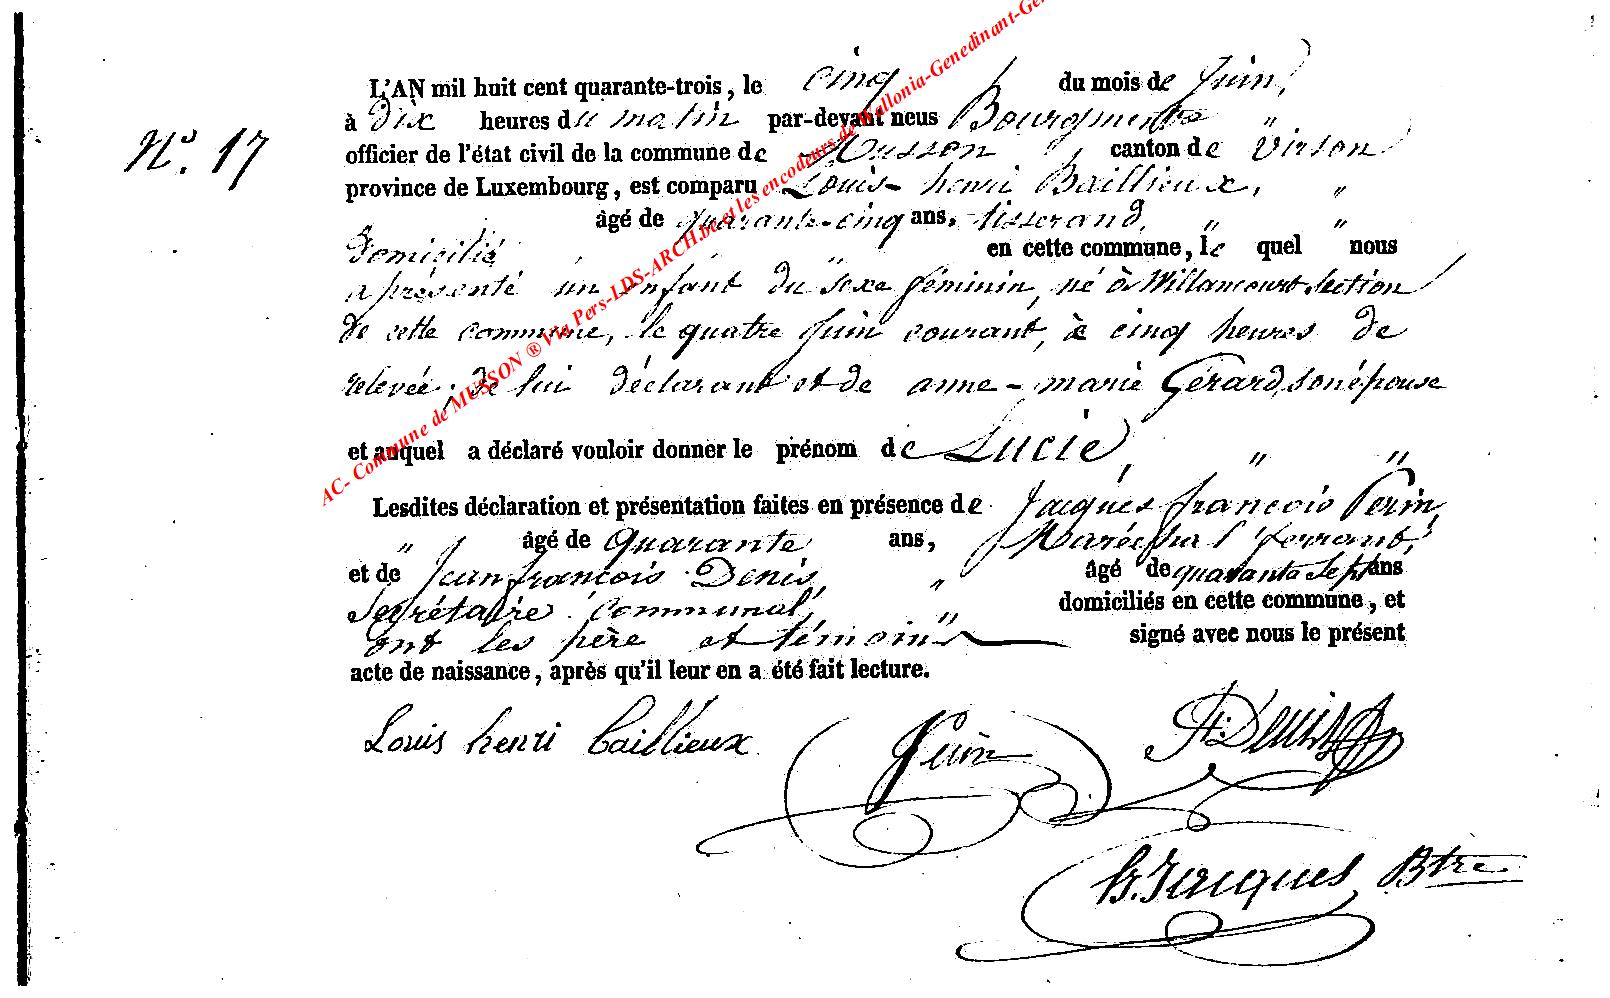 N.o 17
L'AN mil huit cent quarante-trois, le cinq du mois de Juin,
à Dix heures du matin par-devant nous Bourgmestre "
officier de l'état civil de la commune de Musson " canton de Virton
province de Luxembourg, est comparu Louis-henri Baillieux, "
âgé de quarante-cinq ans, tisserand, " "
Domicilié en cette commune, le quel " nous
a présenté un enfant du sexe féminin, né à Willancourt section
de cette commune, le quatre Juin courant, à cinq heures de
relevée, de lui déclarant et de anne-marie Gérard, son épouse
et auquel a déclaré vouloir donner le prénom de Lucie, " "
Lesdites déclaration et présentation faites en présence de Jacques françois Perin,
" âgé de Quarante ans, Maréchal ferrant,
et de Jean françois Denis, " âgé de quarante sept ans
Secrétaire Communal, " domiciliés en cette commune, et
ont les père et témoins signé avec nous le présent
acte de naissance, après qu'il leur en a été fait lecture.
Louis henri baillieux Perin Denis
Jacques Btre
AC- Commune de MUSSON ® Via Pers-LDS-ARCH.be et les encodeurs de Wallonia-Genedinant-Gen